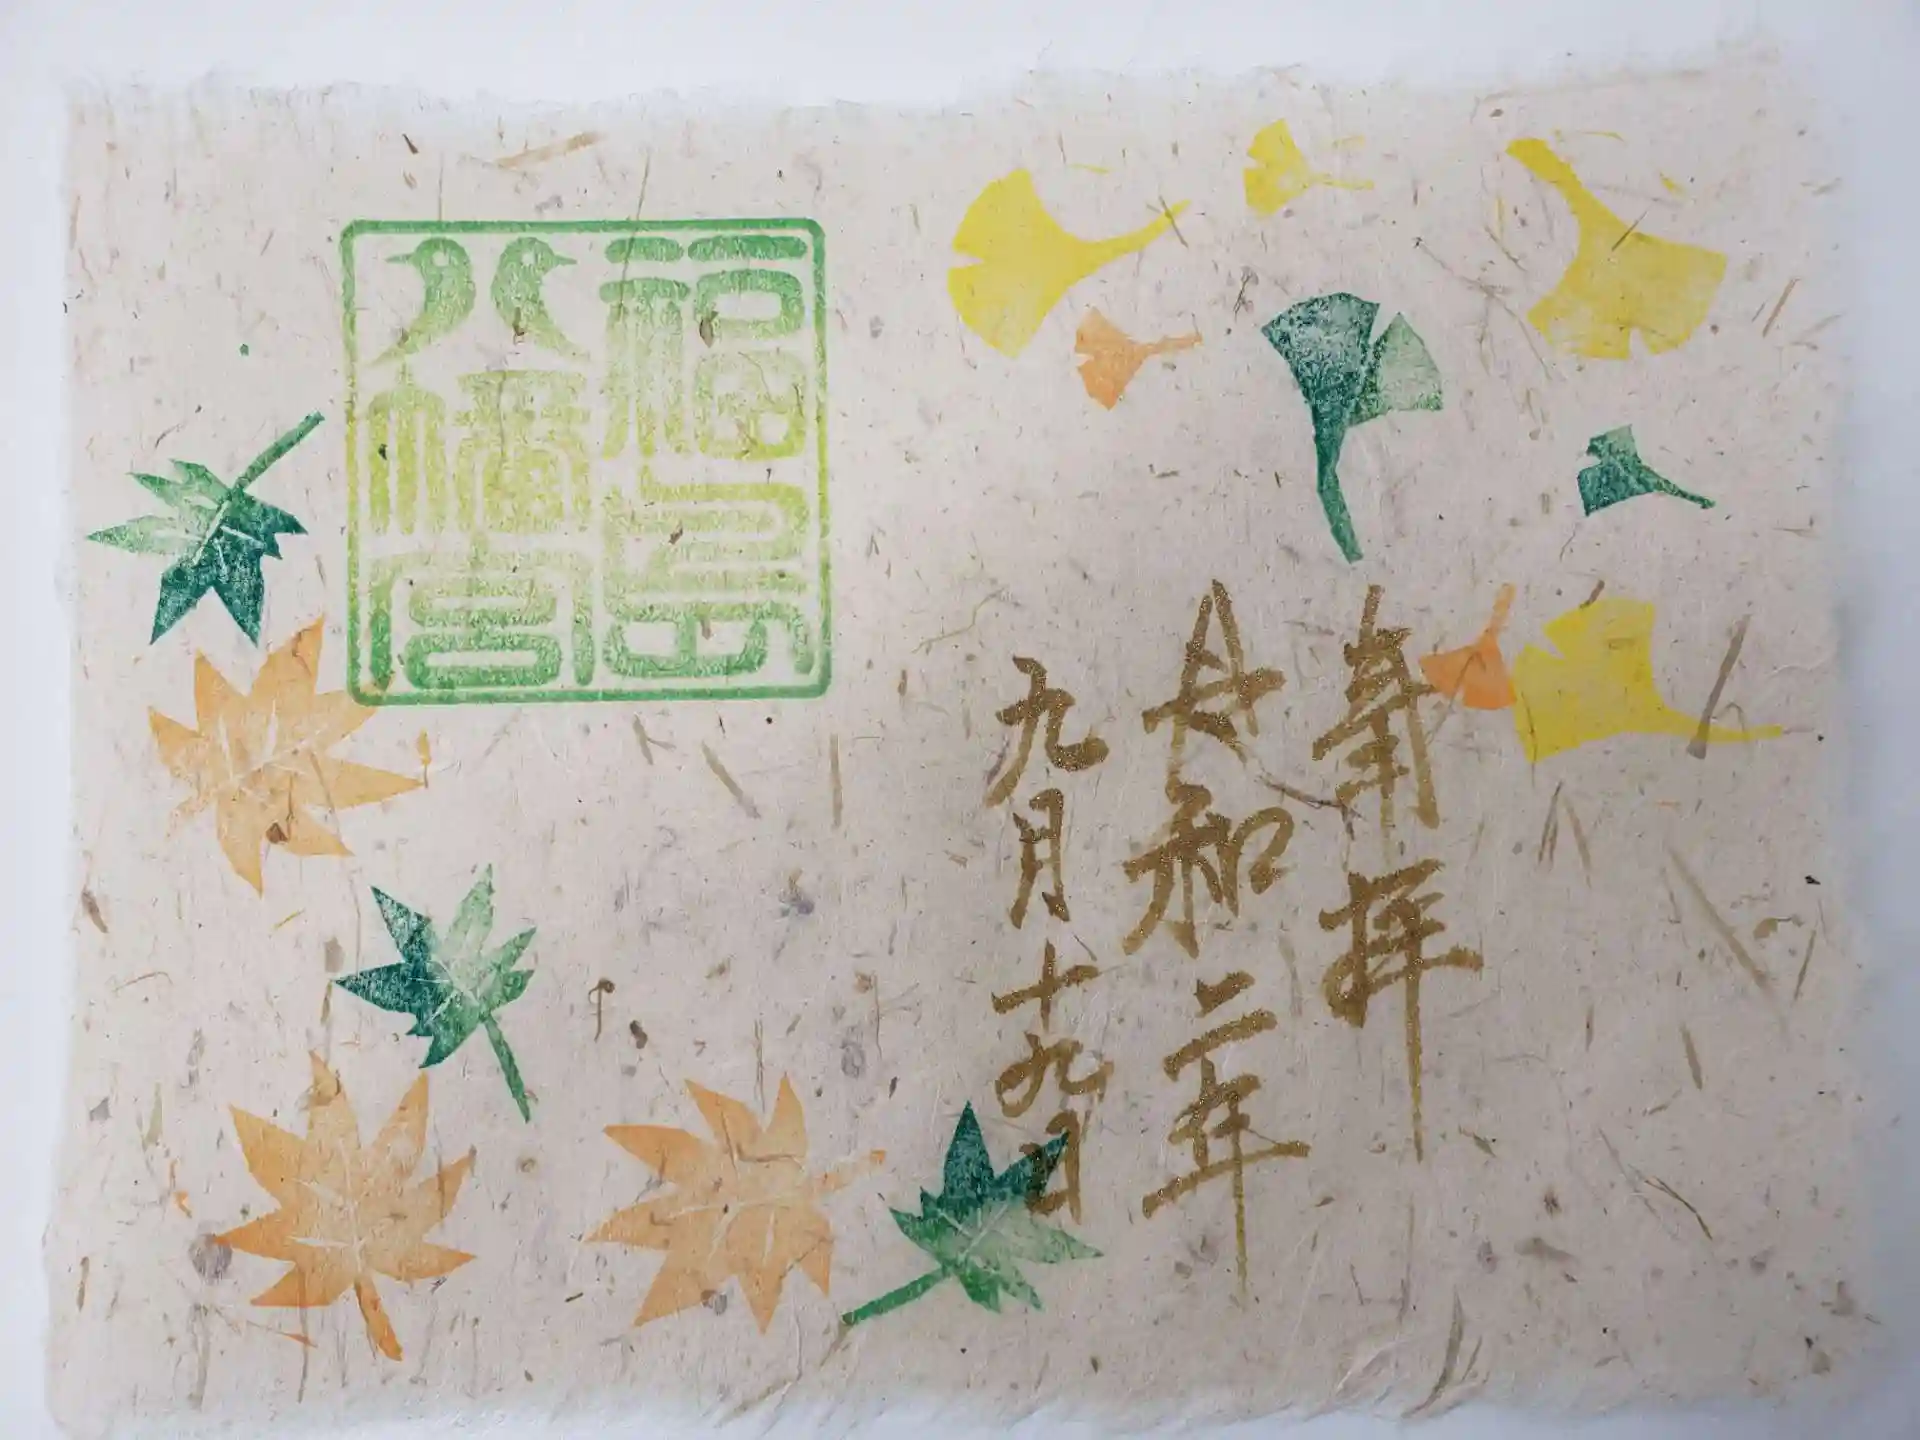 奉拝
令和二年
九月十九日
福島
八幡宮